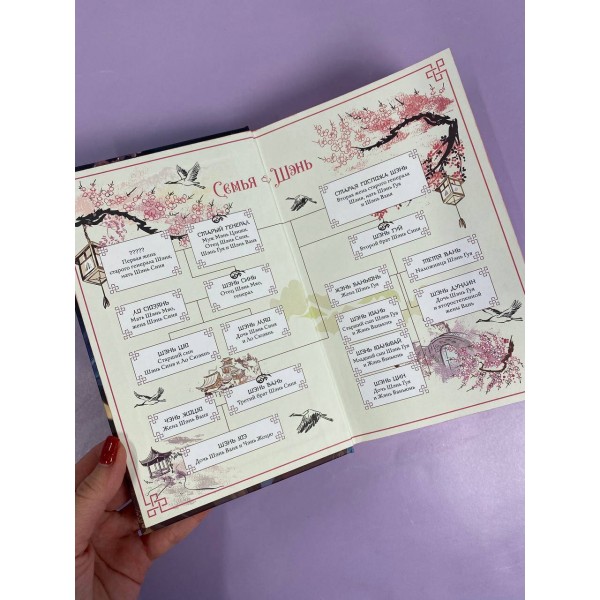 Семья Шэнь
?????
Первая жена
старого генерала Шэня,
мать Шэнь Синя
СТАРЫЙ ГЕНЕРАЛ
Муж Мэнь Цянин,
Отец Шэнь Синя,
Шэнь Гуя и Шэнь Ваня
ШЭНЬ СИНЬ
Отец Шэнь Мяо,
генерал
ЛО СЮЭЯНЬ
Мать Шэнь Мяо,
жена Шэнь Синя
ШЭНЬ МЯО
Дочь Шэнь Синя
и Ло Сюэянь
ШЭНЬ ЦЮ
Старший сын
Шэнь Синя и Ло Сюэянь
ШЭНЬ ВАНЬ
Третий брат Шэнь Синя
ЧЭНЬ ЖОЦЮ
Жена Шэнь Ваня
ШЭНЬ ЮЭ
Дочь Шэнь Ваня и Чэнь Жоцю
СТАРАЯ ГОСПОЖА ШЭНЬ
Вторая жена старого генерала
Шэня, мать Шэнь Гуя
и Шэнь Ваня
ШЭНЬ ГУЙ
Второй брат Шэнь Синя
ЖЭНЬ ВАНЬЮНЬ
Жена Шэнь Гуя
ШЭНЬ ЮАНЬ
Старший сын Шэнь Гуя
и Жэнь Ваньюнь
ШЭНЬ ЮАНЬБАЙ
Младший сын Шэнь Гуя
и Жэнь Ваньюнь
ШЭНЬ ЦИН
Дочь Шэнь Гуя
и Жэнь Ваньюнь
ТЕТЯ ВАНЬ
Наложница Шэнь Гуя
ШЭНЬ ДУНЛИН
Дочь Шэнь Гуя
и второстепенной
жены Вань